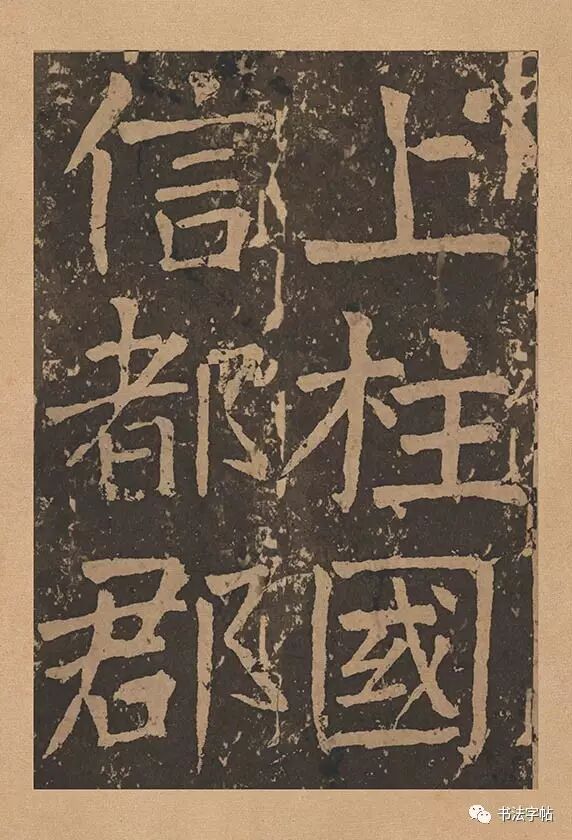 上柱國
信都郡
书法字帖